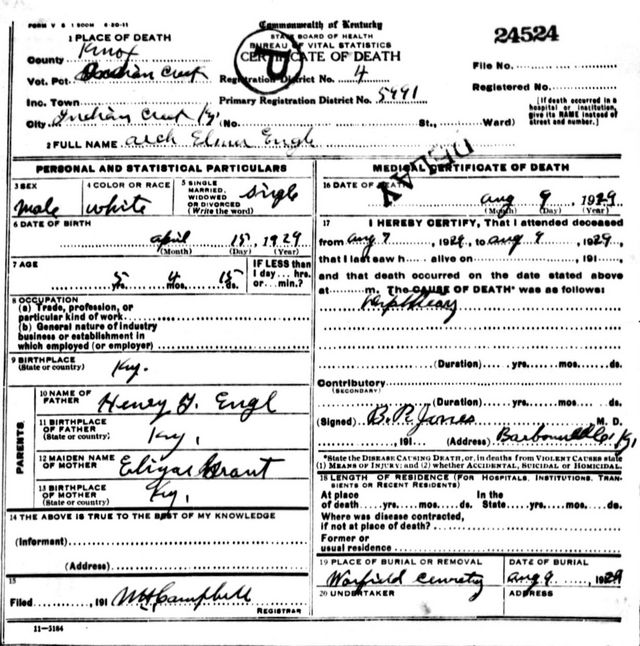 FORM V S 1 500M 6-20-11
Commonwealth of Kentucky
STATE BOARD OF HEALTH
BUREAU OF VITAL STATISTICS
CERTIFICATE OF DEATH
24524
1 PLACE OF DEATH
County Knox
Vot. Pct. Indian Creek
Inc. Town
City Indian Creek Ky. No. St., Ward)
Registration District No. 4
Primary Registration District No. 5441
File No.
Registered No.
[If death occurred in a
hospital or institution,
give its NAME instead of
street and number.]
D
DELAY
2 FULL NAME Arch Elmer Engl
PERSONAL AND STATISTICAL PARTICULARS
3 SEX
male
4 COLOR OR RACE
white
5 SINGLE
MARRIED,
WIDOWED
OR DIVORCED
(Write the word)
single
6 DATE OF BIRTH
april 15, 1929
(Month) (Day) (Year)
7 AGE
5 yrs. 4 mos. 15 ds.
IF LESS than
1 day... hrs.
or min.?
8 OCCUPATION
(a) Trade, profession, or
particular kind of work
(b) General nature of industry
business or establishment in
which employed (or employer)
9 BIRTHPLACE
(State or country)
Ky.
PARENTS
10 NAME OF
FATHER
Henry Engl
11 BIRTHPLACE
OF FATHER
(State or country)
Ky.
12 MAIDEN NAME
OF MOTHER
Grant
13 BIRTHPLACE
OF MOTHER
(State or country)
Ky.
14 THE ABOVE IS TRUE TO THE BEST OF MY KNOWLEDGE
(Informant)
(Address)
15
Filed , 191 Campbell
REGISTRAR
11-5184
MEDICAL CERTIFICATE OF DEATH
16 DATE OF DEATH
aug 9 1929
(Month) (Day) (Year)
17 I HEREBY CERTIFY, That I attended deceased
from aug 7, 1929, to aug 9, 1929,
that I last saw h alive on , 191
and that death occurred on the date stated above
at m. The CAUSE OF DEATH* was as follows:
(Duration) yrs. mos. ds.
Contributory
(SECONDARY)
(Duration) yrs. mos. ds.
(Signed) B. P. Jones M. D.
, 191 (Address) Ky.
*State the DISEASE CAUSING DEATH, or, in deaths from VIOLENT CAUSES state
(1) MEANS OF INJURY; and (2) whether ACCIDENTAL, SUICIDAL OR HOMICIDAL.
18 LENGTH OF RESIDENCE (FOR HOSPITALS, INSTITUTIONS, TRAN-
SIENTS OR RECENT RESIDENTS)
At place In the
of death yrs. mos. ds. State yrs. mos. ds.
Where was disease contracted,
if not at place of death?
Former or
usual residence
19 PLACE OF BURIAL OR REMOVAL
Warfield
DATE OF BURIAL
aug 9 1929
20 UNDERTAKER
ADDRESS